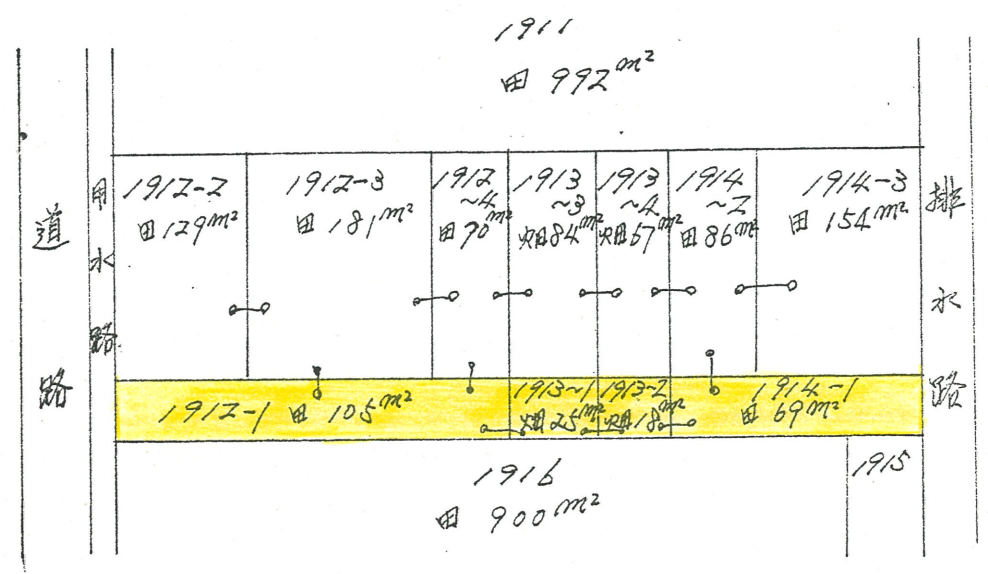 1911
田 992m²
道路
用水路
1912-2
田129m²
1912-3
田 181m²
1912
~4
田70m²
1913
~3
畑84m²
1913
~4
畑67m²
1914
~2
田86m²
1914-3
田 154m²
排水路
1912-1 田 105m²
1913~1
畑25m²
1913-2
畑18m²
1914-1
田 69m²
1916
田 900m²
1915